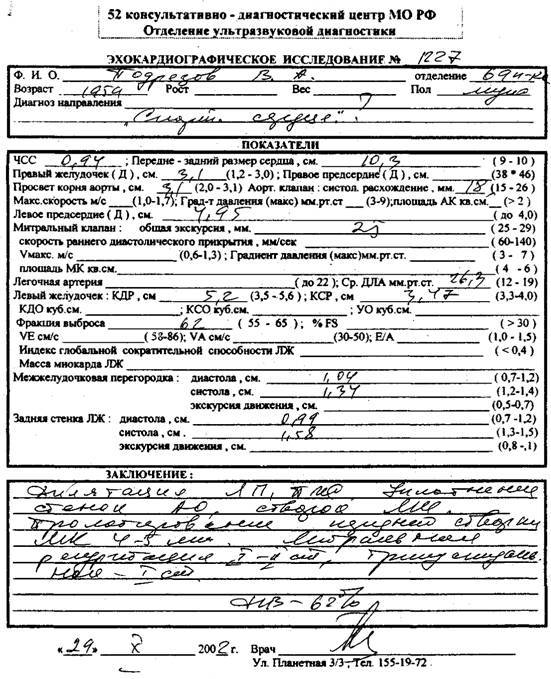 52 консультативно - диагностический центр МО РФ
Отделение ультразвуковой диагностики
ЭХОКАРДИОГРАФИЧЕСКОЕ ИССЛЕДОВАНИЕ № 1227
Ф. И. О. Подрезов В. А. отделение
Возраст 1959 Рост Вес Пол муж
Диагноз направления
ПОКАЗАТЕЛИ
ЧСС 0,94 ; Передне - задний размер сердца , см. 10,3 (9 - 10)
Правый желудочек ( Д ) , см. 3,1 (1,2 - 3,0) ; Правое предсердие ( Д ), см. (38 * 46)
Просвет корня аорты, см. 3,1 (2,0 - 3,1) Аорт. клапан : систол. расхождение , мм. 18 (15 - 26 )
Макс.скорость м/с (1,0-1,7); Град-т давления (макс) мм.рт.ст (3-9);площадь АК кв.см. (> 2 )
Левое предсердие ( Д ), см. 4,95 ( до 4,0)
Митральный клапан : общая экскурсия , мм. 25 (25 - 29)
скорость раннего диастолического прикрытия , мм/сек (60-140)
Vмакс. м/с (0,6-1,3) ; Градиент давления (макс)мм.рт.ст. (3 - 7 )
площадь МК кв.см. ( 4 - 6 )
Легочная артерия ( до 22 ) ; Ср. ДЛА мм.рт.ст. 26,3 (12 - 19)
Левый желудочек : КДР , см 5,2 (3,5 - 5,6 ) ; КСР , см 3,47 (3,3-4,0)
КДО куб.см. ; КСО куб.см. ; УО куб.см.
Фракция выброса 62 ( 55 - 65 ) ; % FS (>30 )
VE см/с ( 58-86); VA см/с (30-50); E/A (1,0 - 1,5)
Индекс глобальной сократительной способности ЛЖ (< 0,4 )
Масса миокарда ЛЖ
Межжелудочковая перегородка : диастола , см. 1,04 ( 0,7-1,2)
систола , см. 1,34 (1,2-1,4)
экскурсия движения , см. (0,5-0,7)
Задняя стенка ЛЖ : диастола , см. 0,99 (0,7 -1,2)
систола , см . 1,58 (1,3-1,5)
экскурсия движения , см. (0,8 -,1)
ЗАКЛЮЧЕНИЕ :
Дилятация ЛП, Уплотнение
стенок АО, створок МК.
Пролабирование передней створки
МК 4-5 мм. Митральная
регургитация I-II ст, трикуспидаль-
ная - I ст
ФВ - 62%
« 29 » X 2002 г. Врач
Ул. Планетная 3/3 , Тел. 155-19-72